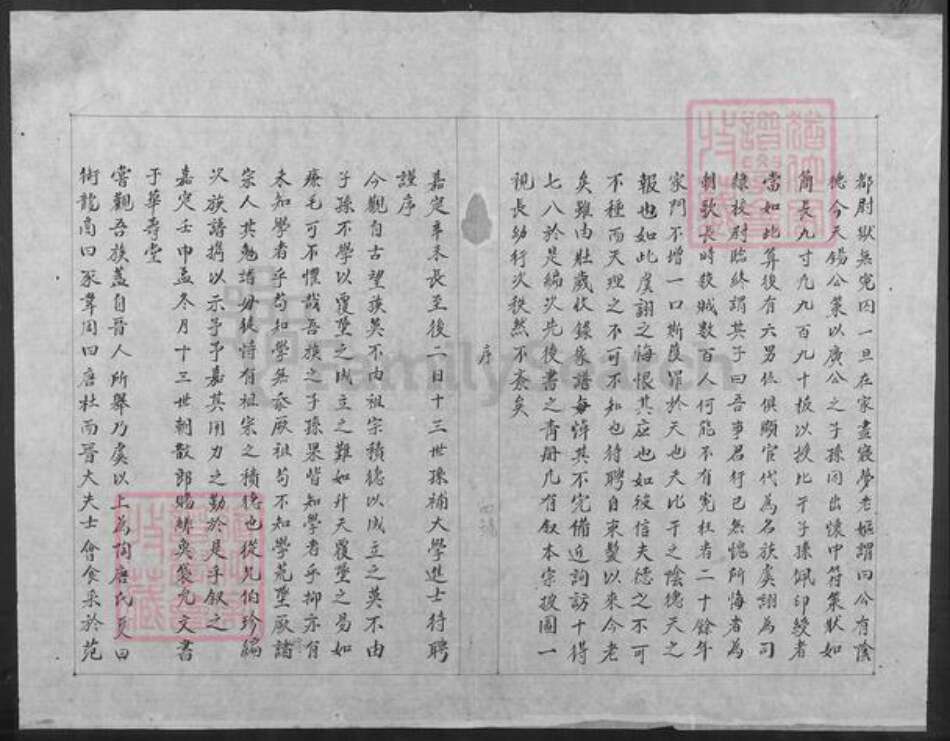 都尉獄無冤囚一旦在家晝寢夢老嫗謂曰公有陰
德今天錫公策以廣公之子孫因出懷中符策狀如
簡長九寸凡九百九十板以授比干子孫佩印綬者
當如此算後有六男俱顯官代為名族虞詡為司
隸校尉臨終謂其子曰吾事君行已無愧所悔者為
朝歌長時殺賊數百人何能不有冤枉者二十餘年
家門不增一口斯獲罪於天也夫比干之陰德天之
報也如此虞詡之悔恨其应也如彼信夫德之不可
不種而天理之不可不知也特聘自束髮以來今老
矣雖由壯歲收錄家譜每悼其不完備近詢訪十得
七八於是編次先後書之青冊凡有叙本宗披圖一
視長幼行次秩然不紊矣
序
嘉定辛未長至後二日十三世孫補大學進士特聘
謹序
今觀自古望族莫不由祖宗積德以成立之莫不由
子孫不學以覆墜之成立之難如升天覆墜之易如
燎毛可不懼哉吾族之子孫果皆知學者乎抑亦有
未知學者乎苟知學無忝厥祖苟不知學荒墜厥諸
宗人其勉諸毋徒恃有祖宗之積德也從兄伯珍編
次族譜携以示予予嘉其用力之勤於是乎叙之
嘉定壬申孟冬月十三世朝散郎賜緋魚袋允文書
于華壽堂
嘗觀吾族蓋自晉人所舉乃虞以上為陶唐氏夏曰
御龍商曰豕韋周曰唐杜而晉大夫士會食采於范
FamilySearch